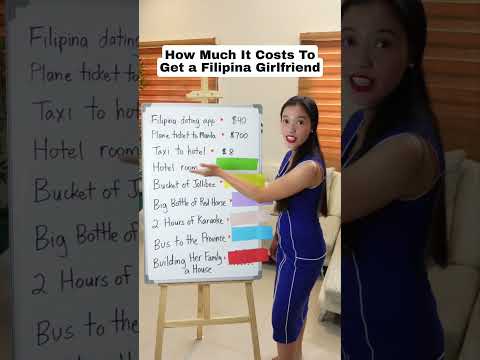 How Much It Costs To
Get a Filipina Girlfriend
Filipina dating app • $90
Plane ticket to Manila • $700
Taxi to hotel • $8
Hotel room
Bucket of Jollibee
Big Bottle of Red Horse
2 Hours of Karaoke
Bus to the Province
Building Her Family
a House
Filipina dating
Plane ticket to
Taxi to hotel
Hotel room
Bucket of
Big Bottle
2 Hours of
Bus to the